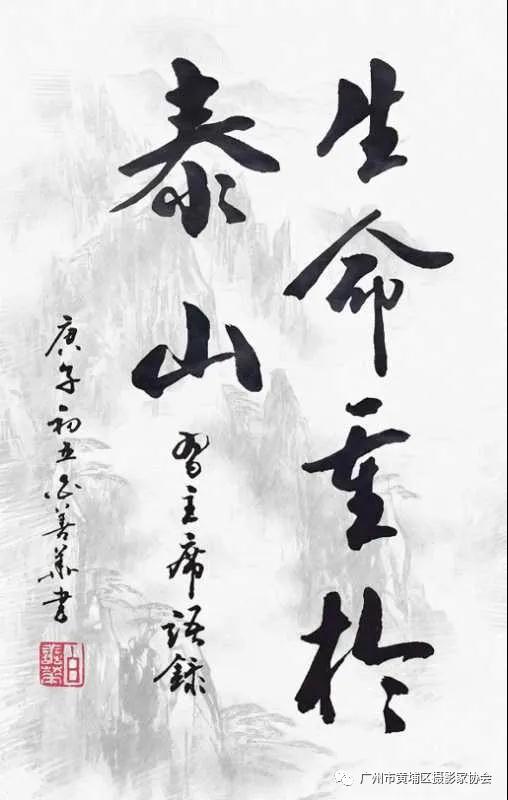 生命重於
泰山
習主席语録
庚子初五白善書
广州市黄埔区摄影家协会